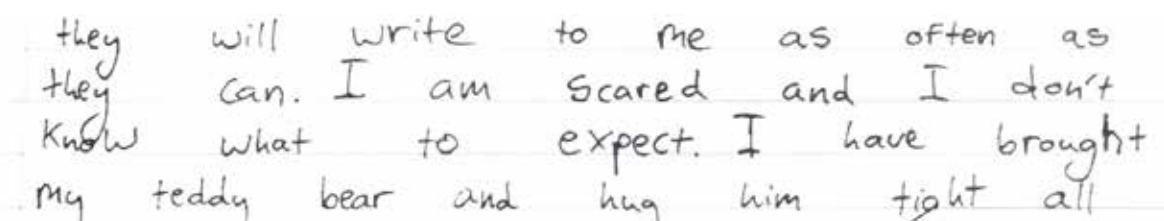 they will write to me as often as
they can. I am scared and I don't
Know what to expect. I have brought
my teddy bear and hug him tight all